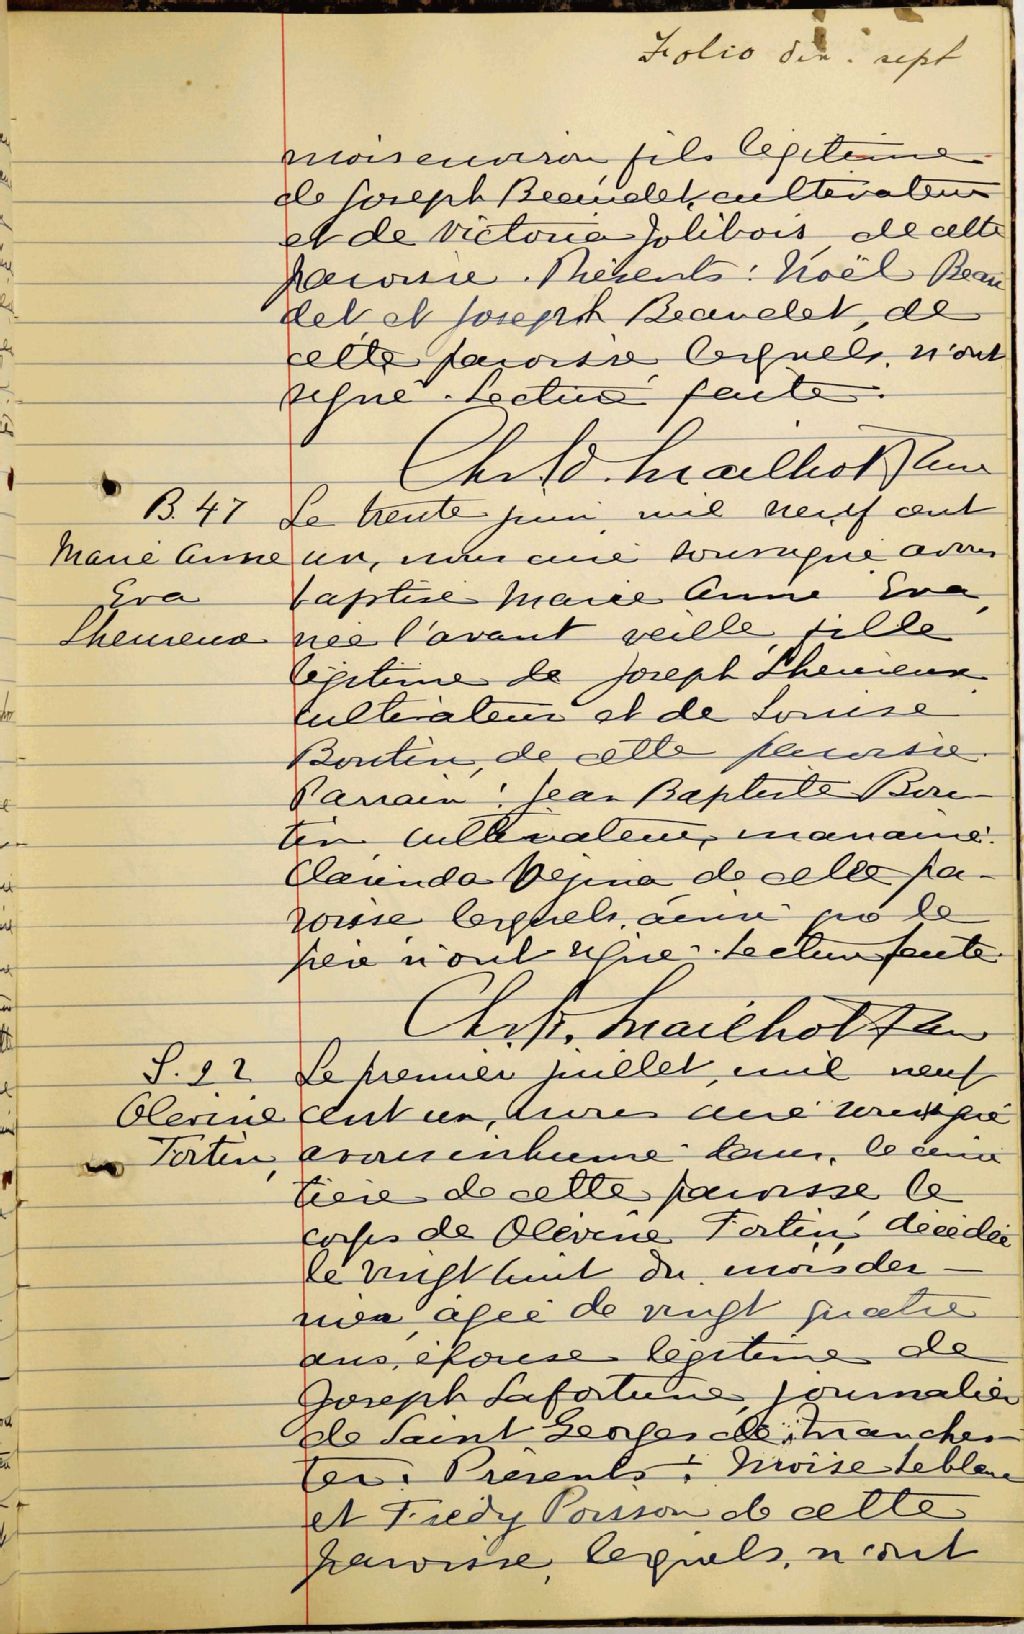 Folio dix-sept
mois environ, fils légitime
de Joseph Beaudet, cultivateur
et de Victoria Jolibois, de cette
paroisse. Présents: Noël Beau
det, et Joseph Beaudet, de
cette paroisse, lesquels n'ont
signé. Lecture faite.
Mailhot Ptre
B. 47
Marie Anne
Eva
Lheureux
Le trente juin, mil neuf cent
un, nous curé soussigné avons
baptisé Marie Anne Eva,
née l'avant veille, fille
légitime de Joseph Lheureux
cultivateur et de Louise
Boutin, de cette paroisse.
Parrain: Jean Baptiste Bou-
tin cultivateur, marraine:
Clarinda Vézina de cette pa-
roisse, lesquels, ainsi que le
père n'ont signé. Lecture faite.
Mailhot Ptre
S. 22
Olevine
Fortin,
Le premier juillet, mil neuf
cent un, nous curé soussigné
avons inhumé dans le cime
tière de cette paroisse le
corps de Olévine Fortin, décédée
le vingt huit du mois der-
nier, agée de vingt quatre
ans, épouse légitime de
Joseph Lafortune, journalier
de Saint Georges de Manches-
ter. Présents: Moïse Leblanc
et Fredy Poisson de cette
paroisse, lesquels, n'ont